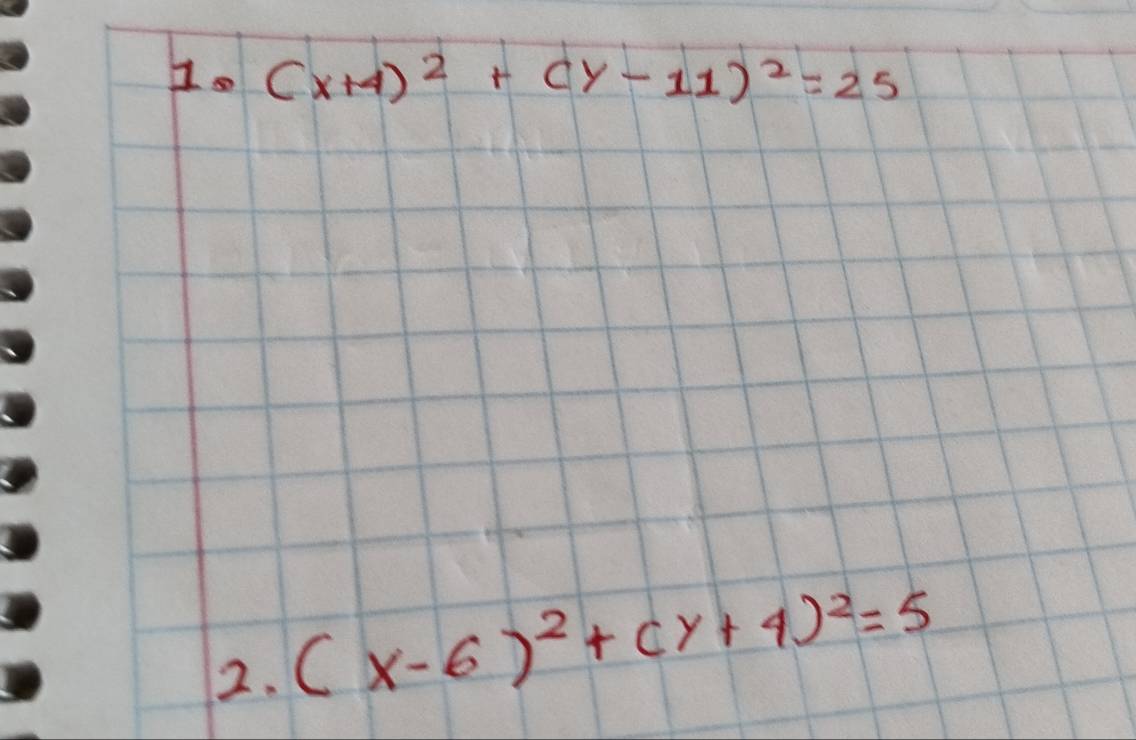 1. (x+4)² + (y-11)²=25
2. (x-6)²+(y+4)²=5